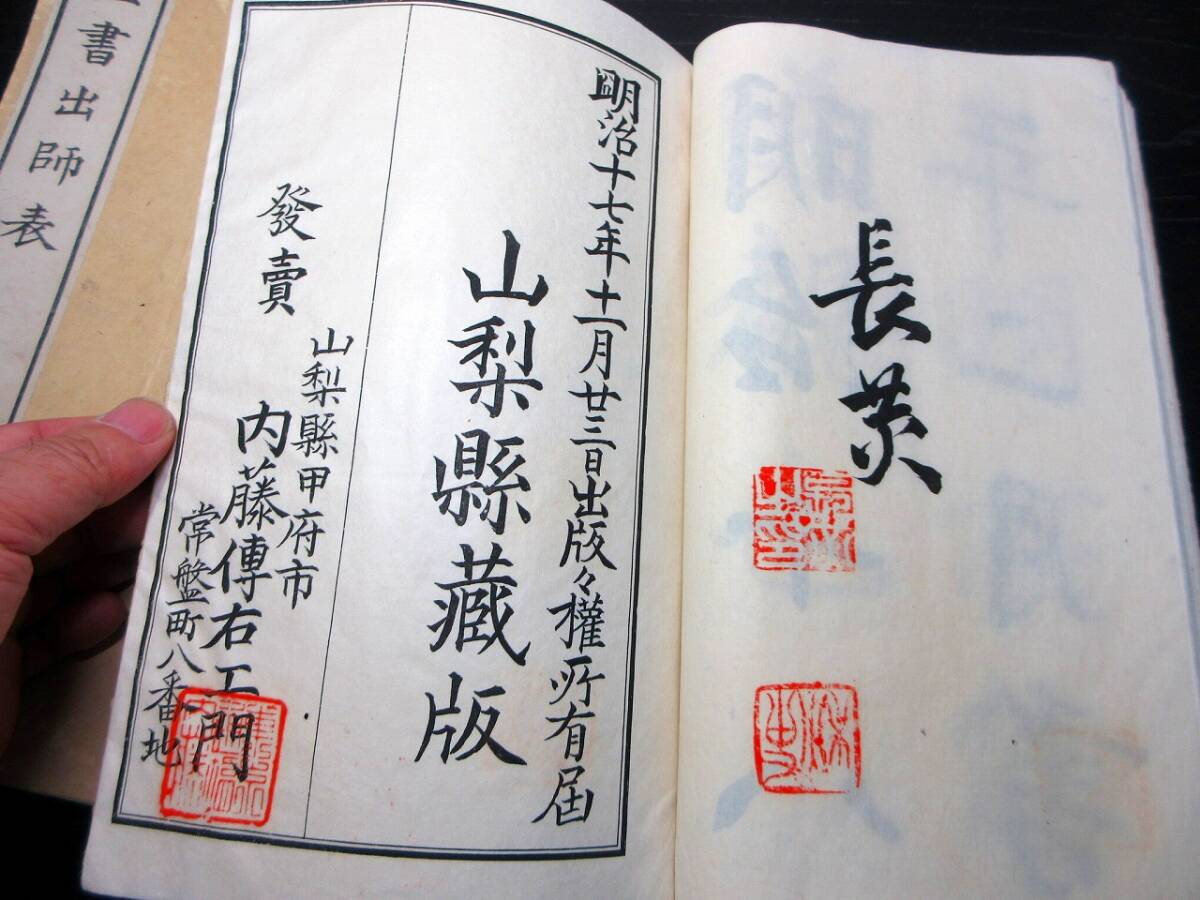 長炗
明治十七年十一月廿三日出版々權所有届
山梨縣藏版
發賣
山梨縣甲府市
常盤町八番地
内藤傳右エ門
書出師表